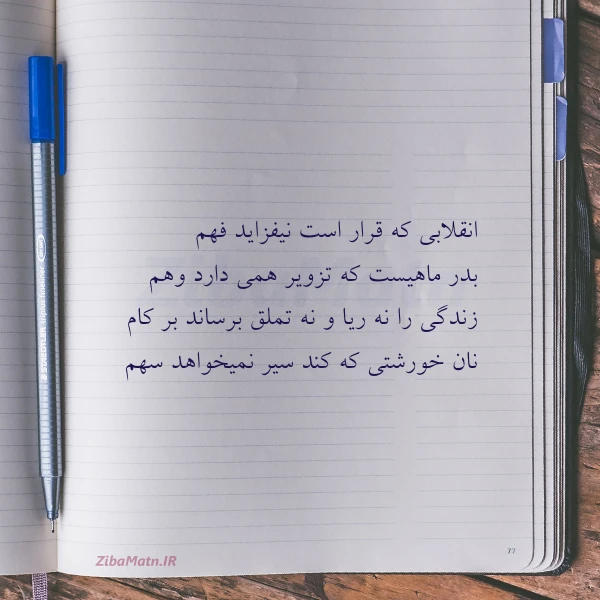 انقلابی که قرار است نیفزاید فهم
بدر ماهیست که تزویر همی دارد وهم
زندگی را نه ریا و نه تملق برساند بر کام
نان خورشتی که کند سیر نمیخواهد سهم
ZibaMatn.IR
77